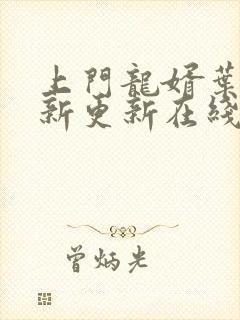 上門龍婿葉
新更新在綫
曾炳光